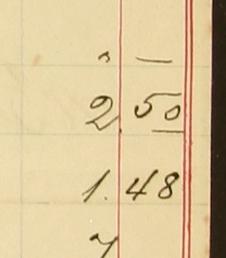 " —
2.50
1.48